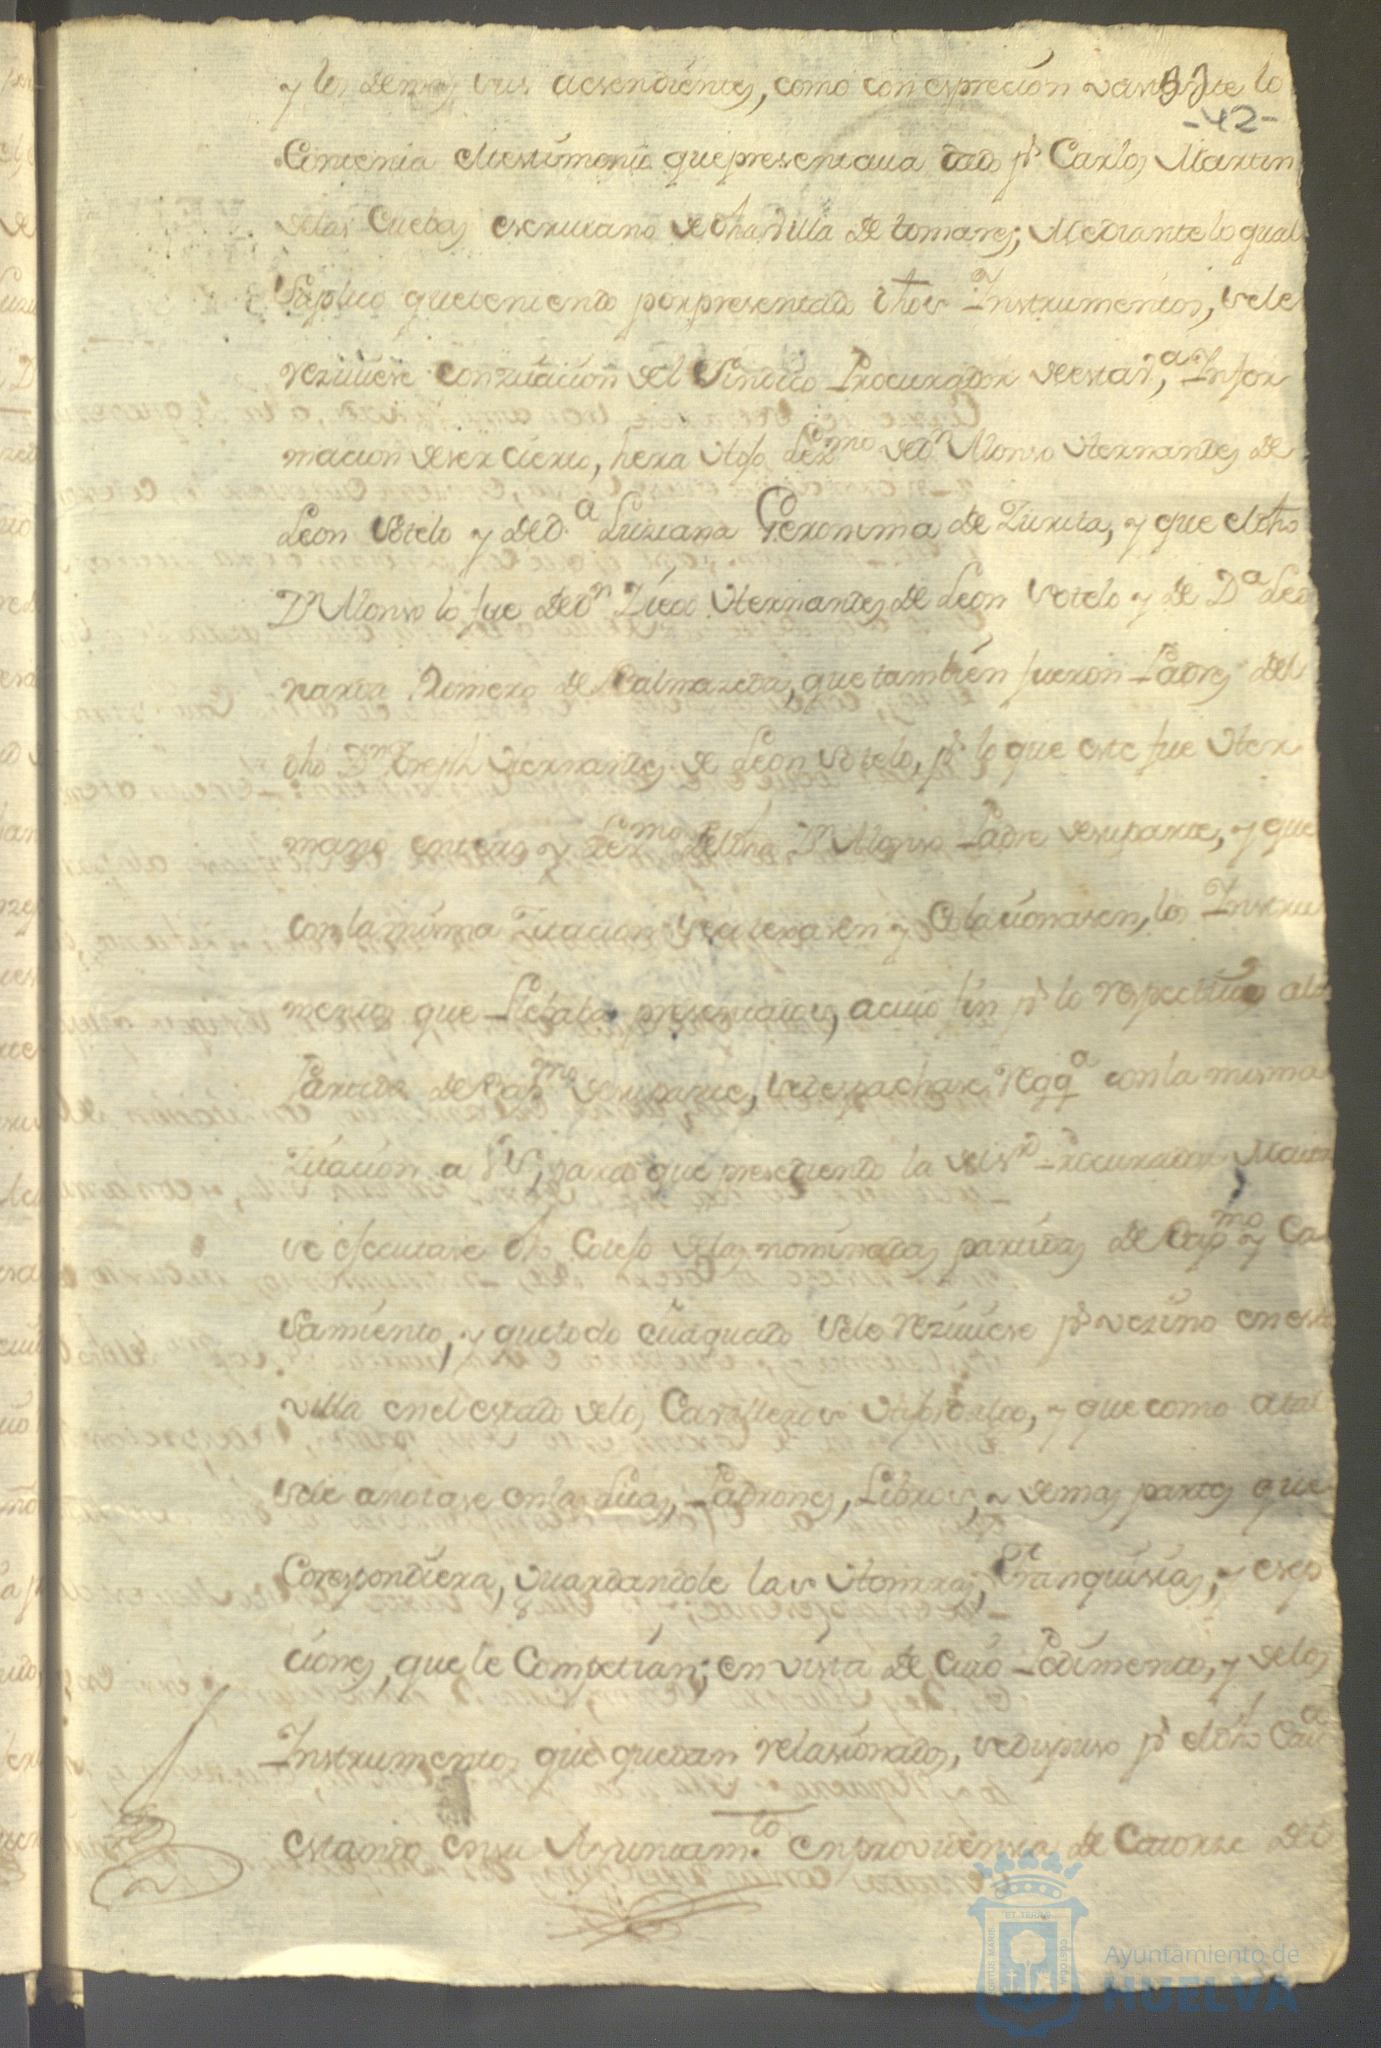 y los demas sus acsendientes, como con espresion vastante lo
-42-
Contenia el testimonio que presentaua dado pr. Carlos Martin
de las Cuebas escriuano de dha Villa de tomares; Mediante lo qual
Suplico que teniendo por presentado dhos Instrumentos, sele
reziuiese Conzitacion del Sindico Procurador de esta va., Infor
macion de ser cierto, hera Hijo Lexmo de Dn Alonso Hernandes de
Leon Sotelo y de D.a Luziana Geronima de Zurita, y que el dho
Dn Alonso lo fue de Dn Diego Hernandes de Leon Sotelo y de Da Leo
narda Romero de Balmazeda, que tambien fueron Padres del
dho Dn Joseph Hernandes de Leon Sotelo, pr lo que este fue Her
mano entero y Lexmo del dho Dn Alonso Padre de su parte, y que
con la misma Zitacion se cutexasen y Colacionasen, los Instru
mentos que lleuaba presentados, a cuio fin pr lo respectiuo a la
Partida de Bapmo de su parte, sedespachase Reqqa con la misma
Zitacion a VS, para que presediendo la del Sr Procurador Maior
se esecutase dho Cotejo de las nominadas partidas de Bapmo y Ca
samiento, y que todo euaquado sele reziuiese pr vezino en esta
villa en el estado de los Caualleros Hijosdalgo, y que como a tal
sele anotase en las Listas, Padrones, Libros, y demas partes que
Corespondiera, Guardandole las Honrras, Franquisias, y esep
ciones, que le Competian; en vista de Cuio Pedimento, y de los
Instrumentos que quedan relasionados, se dispuso pr el dho Cauo
estando en su Ayuntamto en prouidensia de Catorze de
Ayuntamiento de
HUELVA